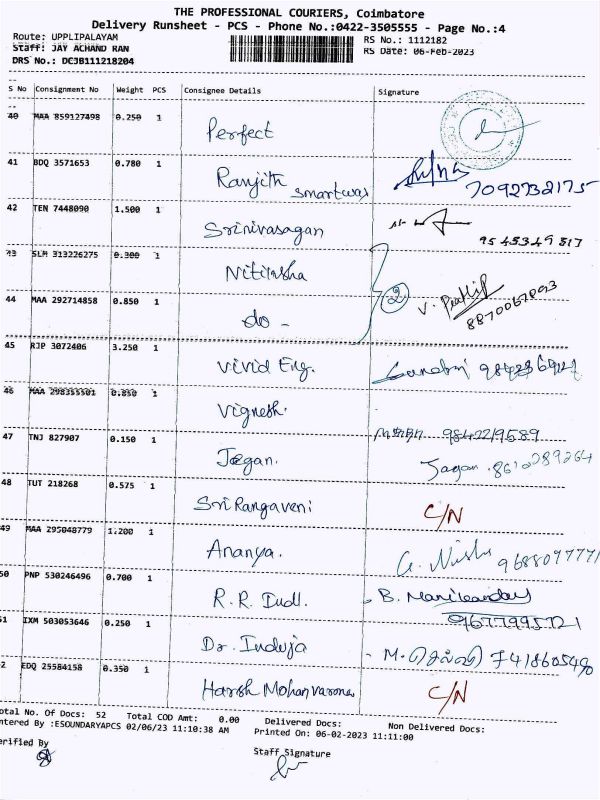 THE PROFESSIONAL COURIERS, Coimbatore
Delivery Runsheet - PCS - Phone No.:0422-3505555 - Page No.:4
Route: UPPLIPALAYAM RS No.: 1112182
Staff: JAY ACHAND RAN RS Date: 06-Feb-2023
DRS No.: DCJB111218204
S No Consignment No Weight PCS Consignee Details Signature
40 MAA 859127498 0.250 1 Perfect
41 BDQ 3571653 0.780 1 Ranjith smartway 7092732175
42 TEN 7448090 1.500 1 Srinivasagan 9545349817
43 SLM 313226275 0.300 1 Nitinsha
44 MAA 292714858 0.850 1 do - 2 V. Prathip 8870067093
45 RJP 3072406 3.250 1 Vivid Eng.
46 MAA 298355501 0.850 1 Vignesh. 9842219589
47 TNJ 827907 0.150 1 Jegan. Jagan 8610289264
48 TUT 218268 0.575 1 Sri Rangaveni C/N
49 MAA 295048779 1.200 1 Ananya. G. Nishu 968809777
50 PNP 530246496 0.700 1 R.R. Dudl. B. Manikandan
9677995721
51 IXM 503053646 0.250 1 Dr. Induja - M. செல்வி 7418605490
2 EDQ 25584158 0.350 1 Harsh Mohanvarona C/N
otal No. Of Docs: 52 Total COD Amt: 0.00 Delivered Docs: Non Delivered Docs:
ntered By :ESOUNDARYAPCS 02/06/23 11:10:38 AM Printed On: 06-02-2023 11:11:00
erified By Staff Signature